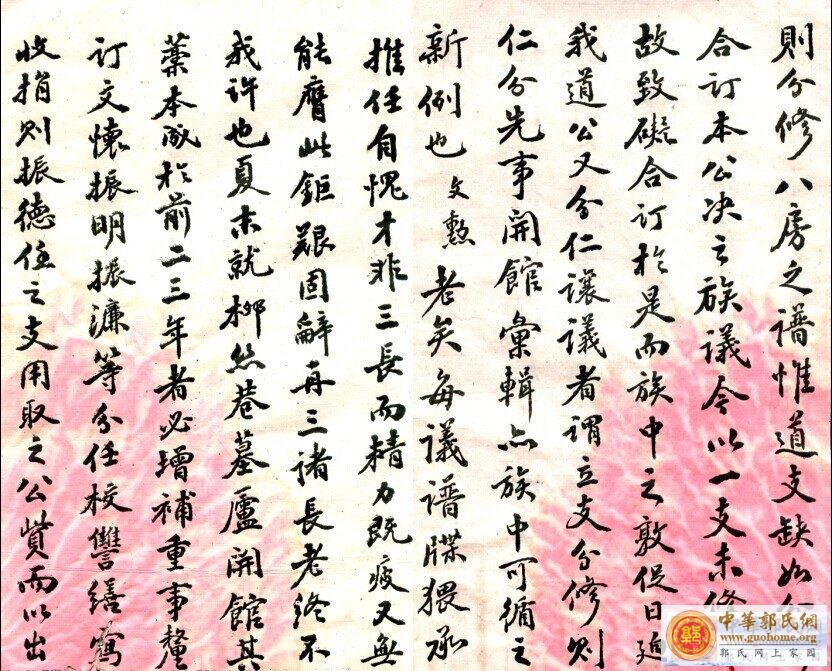 則分修八房之譜惟道支缺如
合訂本公决之族議今以一支未修
故致礙合訂於是而族中之敦促日迫
我道公又分仁讓議者謂立支分修則
仁分先事開館彙輯亦族中可循之
新例也文勲老矣每議譜牒猥承
推任自愧才非三長而精力既疲又無
能膺此鉅艱固辭再三諸長老終不
我許也夏末就柳絲巷墓廬開館其
藁本成於前二三年者必增補重事釐
訂文懷振明振濂等分任校讐繕寫
收捐則振德任之支用取之公貲而以出
中華郭氏網
www.guohome.org
郭氏网上家园